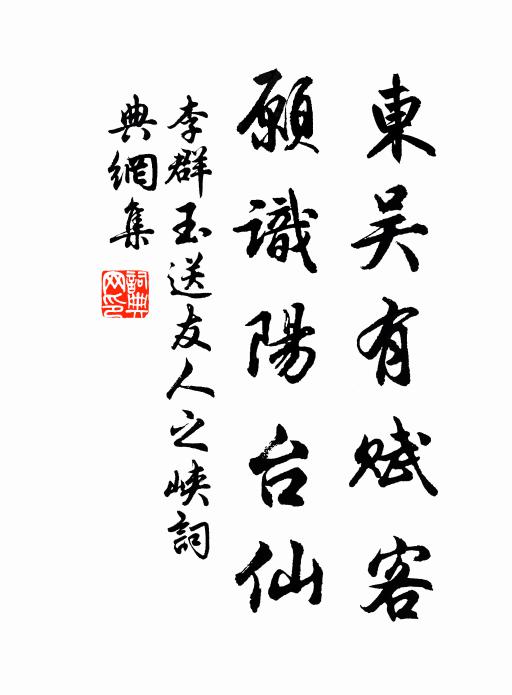 東吴有赋客
願識陽台仙
李群玉送友人之峡詞
典網集
詞典网印